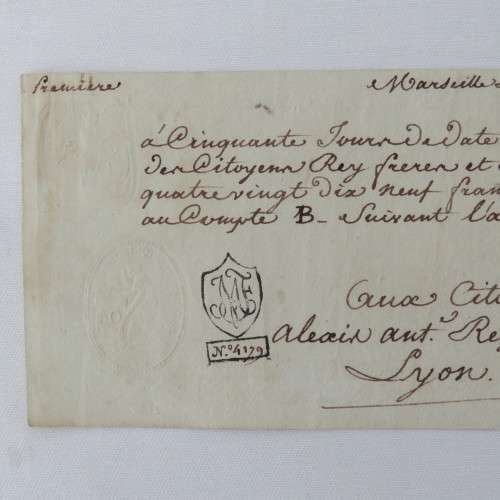 Première Marseille
à Cinquante Jours de date
des Citoyens Rey freres et
quatre vingt dix neuf fran
au Compte B- Suivant l'a
Aux Cit
N.º 4179
alexis ant.e Re
Lyon.